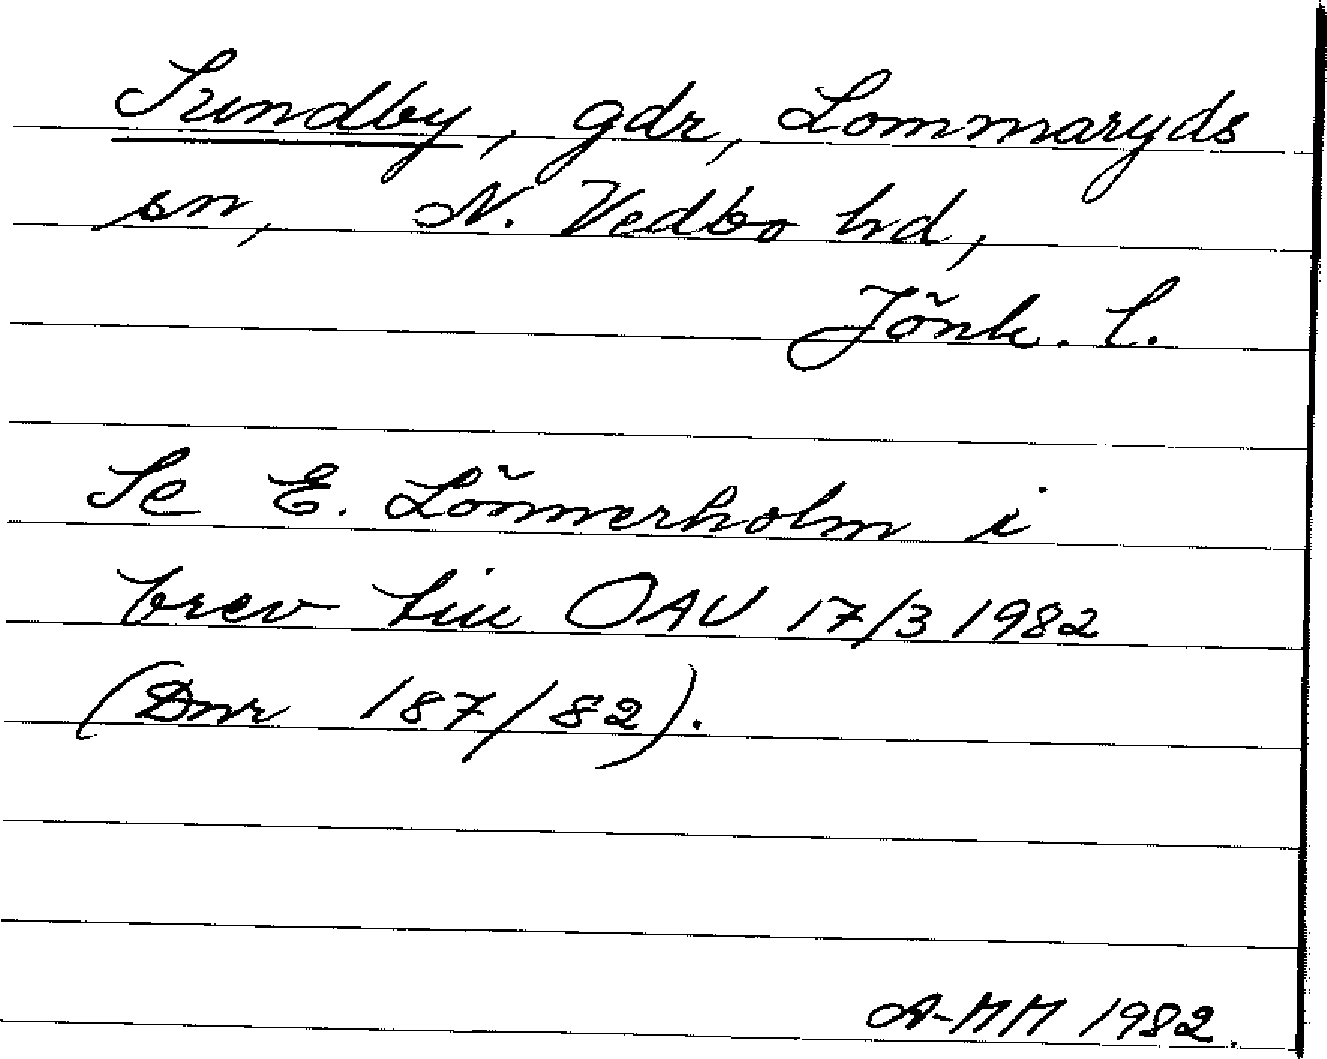 Sundby, gdr, Lommaryds
sn, N. Vedbo hd,
Jönk. l.
Se E. Lönnerholm i
brev till OAU 17/3 1982
(Dnr 187/82).
A-MM 1982.